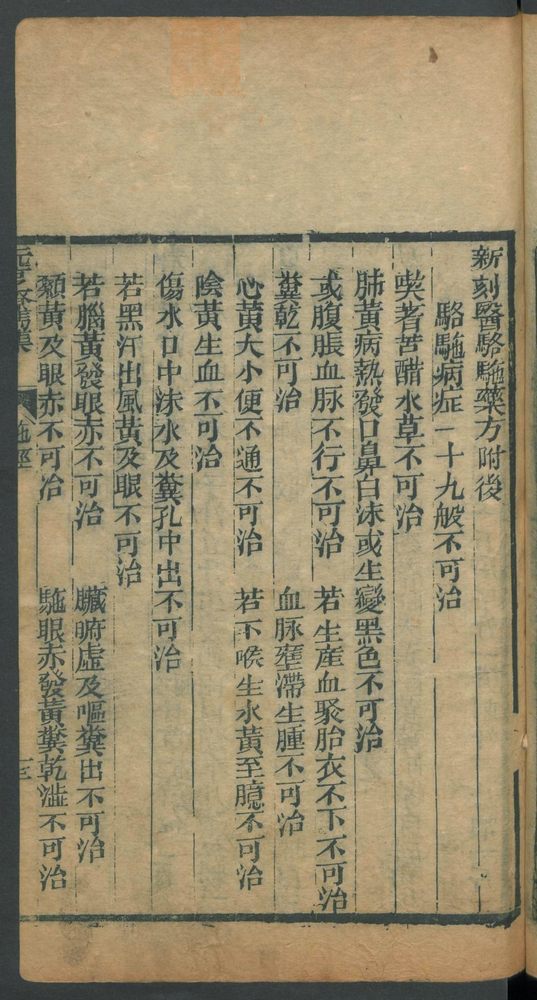 新刻醫駱駞藥方附後
駱駞病症一十九般不可治
喫著苦醋水草不可治
肺黃病熱發口鼻白沫或生變黑色不可治
或腹脹血脉不行不可治　若生産血聚胎衣不下不可治
糞乾不可治　血脉壅滯生腫不可治
心黃大小便不通不可治　若不喉生水黃至臆不可治
陰黃生血不可治
傷水口中沫水及糞孔中出不可治
若黑汗出風黃及眼不可治
若腦黃發眼赤不可治　臟腑虛及嘔糞出不可治
顙黃及眼赤不可治　駞眼赤發黃糞乾澁不可治
元亨療馬集　駞經　三